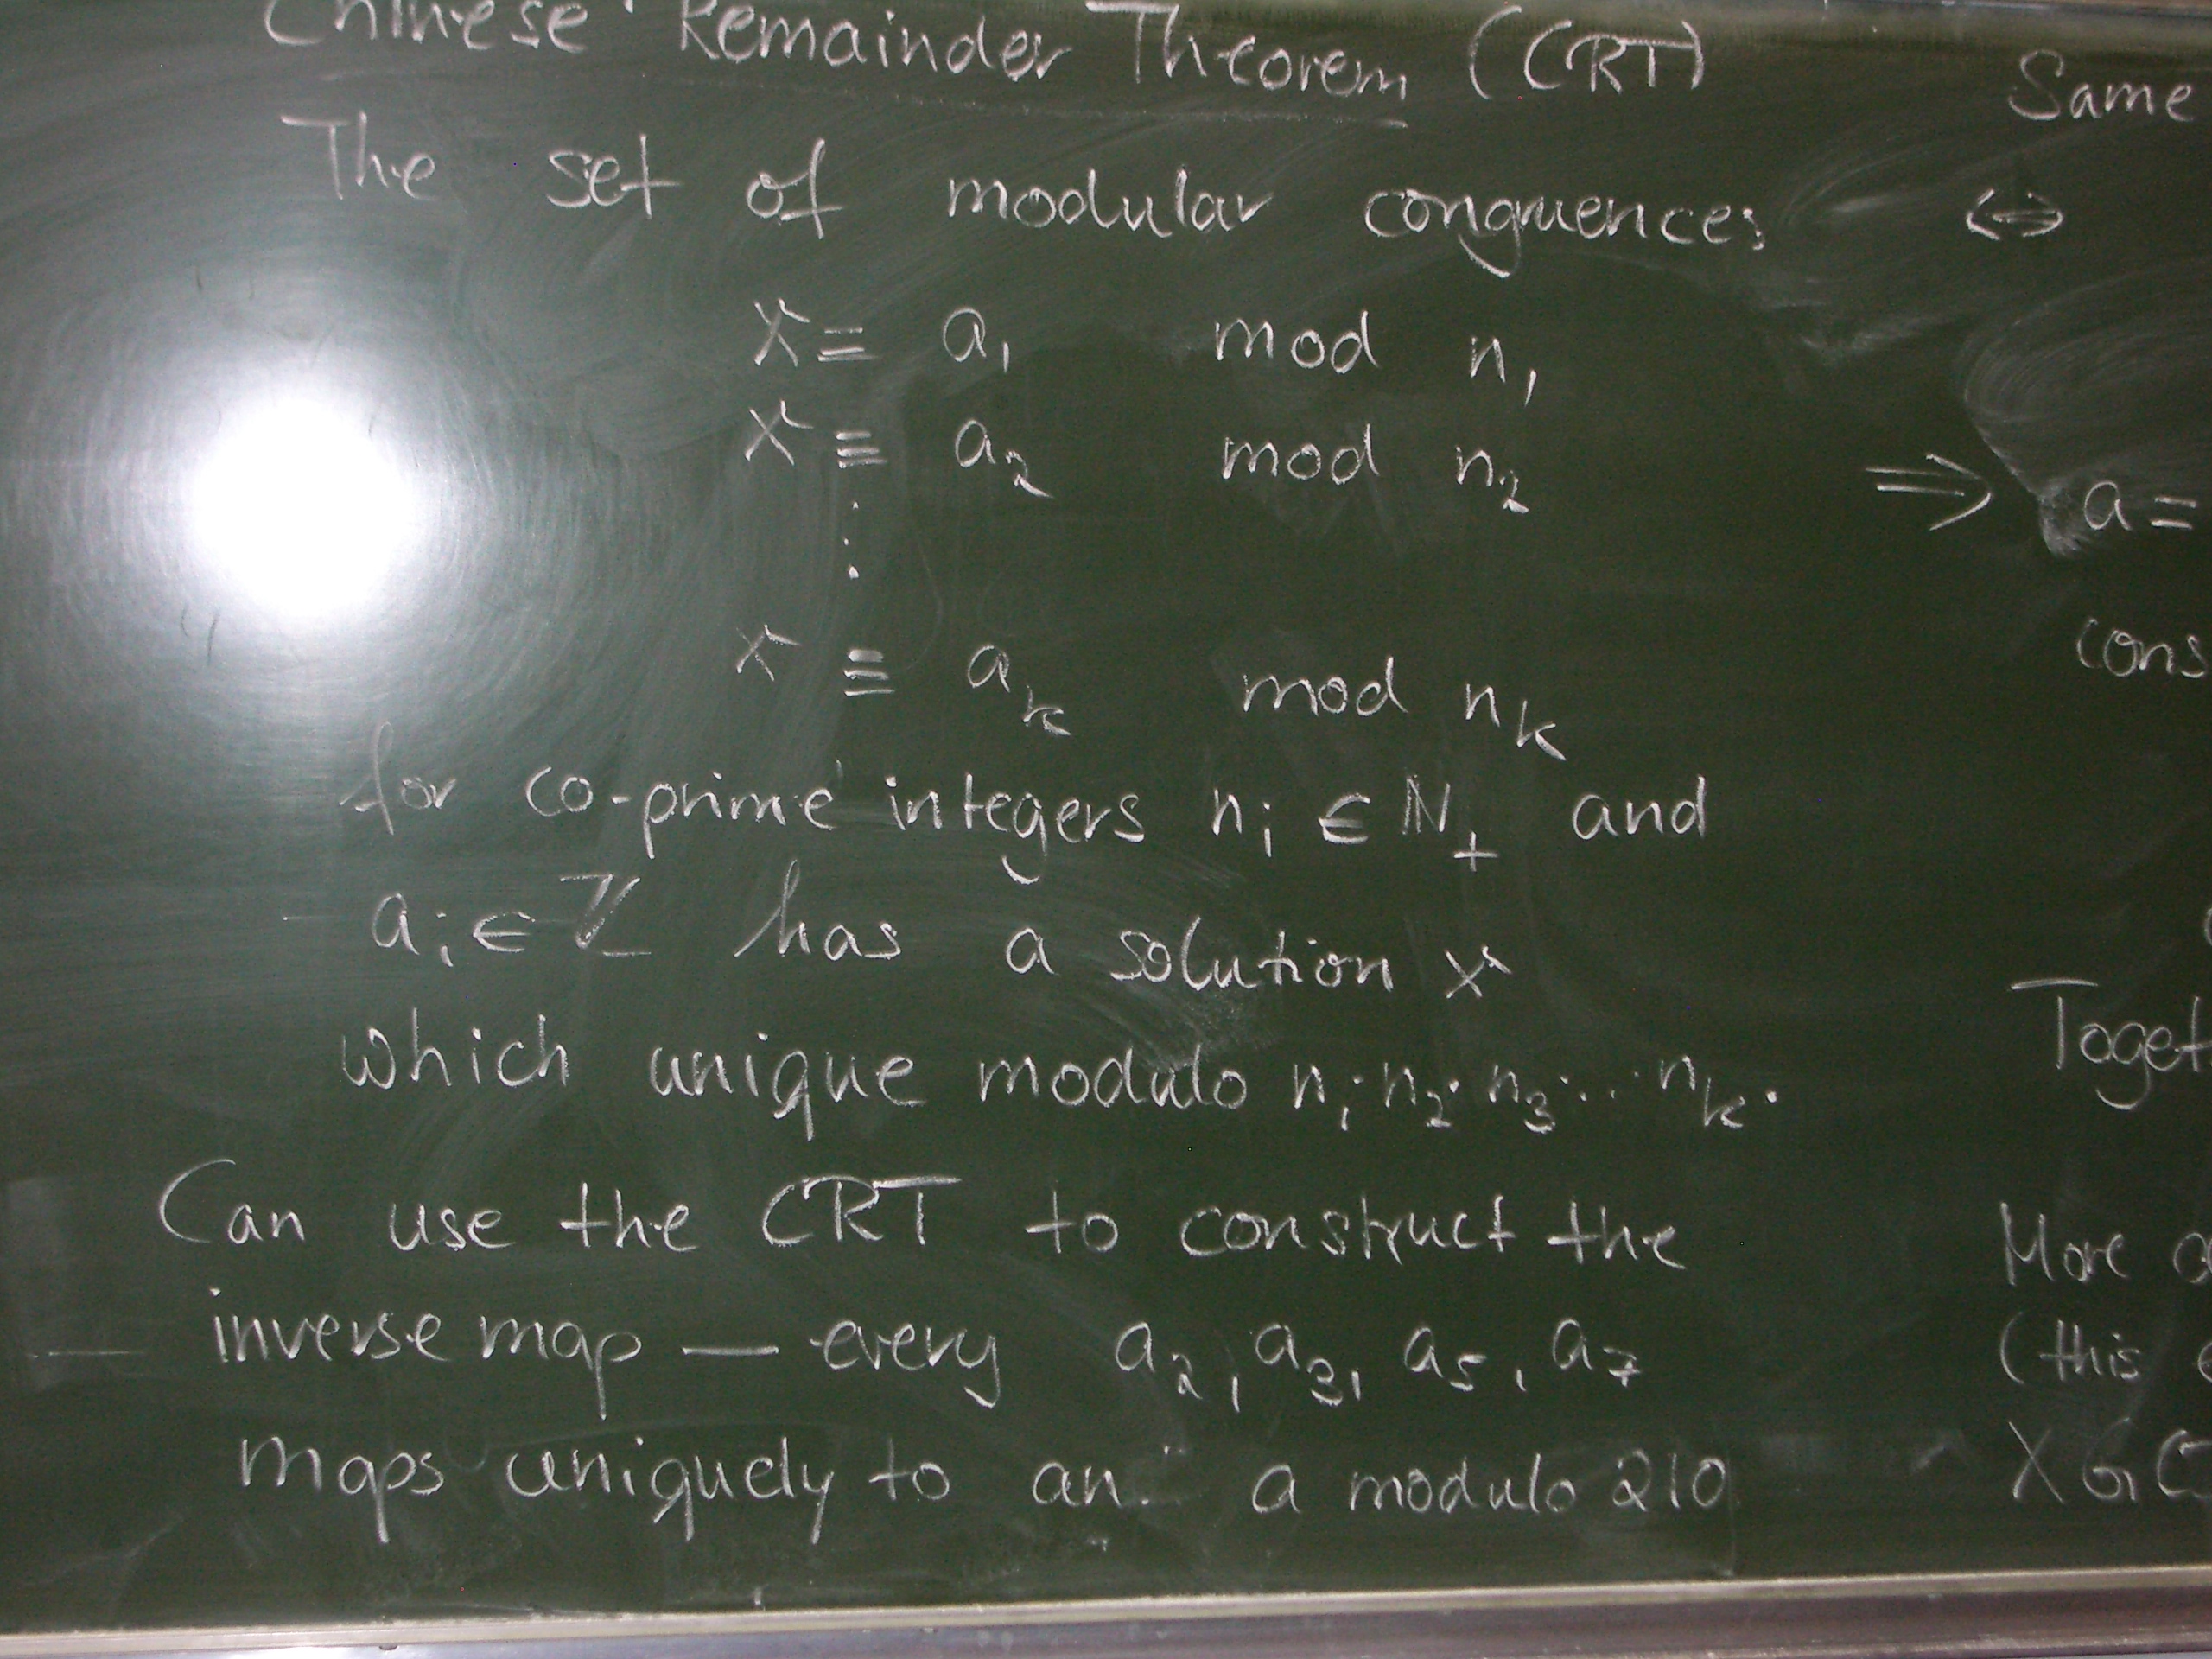 Chinese Remainder Theorem (CRT)
The set of modular congruences
x ≡ a₁ mod n₁
x ≡ a₂ mod n₂
⋮
x ≡ aₖ mod nₖ
for co-prime integers nᵢ ∈ ℕ₊ and
aᵢ ∈ ℤ has a solution x
which unique modulo n₁·n₂·n₃·...·nₖ.
Can use the CRT to construct the
inverse map — every a₂, a₃, a₅, a₇
maps uniquely to an a modulo 210
Same
⇔
⇒ a =
cons
Toget
More
(this
XGC